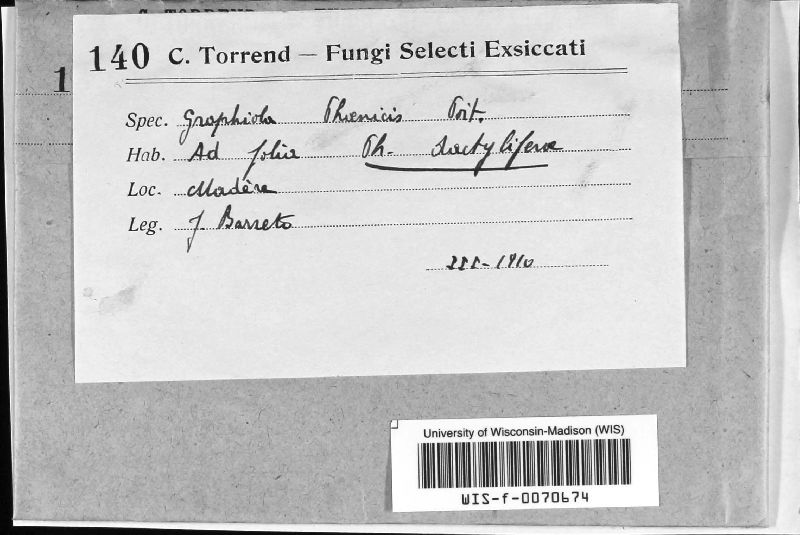 140 C. Torrend — Fungi Selecti Exsiccati
Spec. Graphiola Phœnicis Poit.
Hab. Ad folia Ph. dactyliferæ
Loc. Madère
Leg. J. Barreto
III-1910
1
University of Wisconsin-Madison (WIS)
WIS-f-0070674